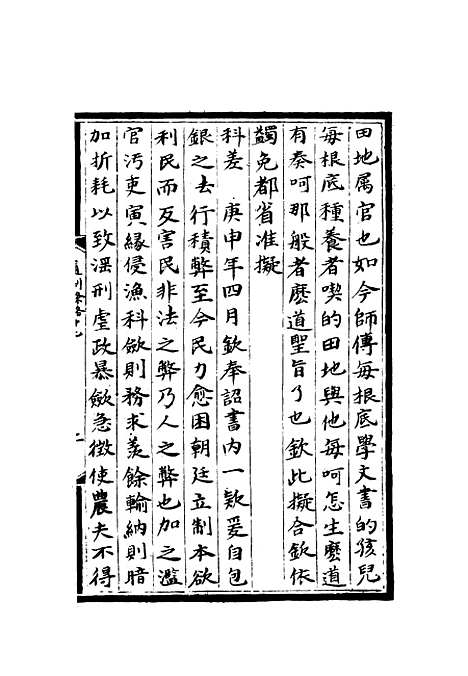 田地属官也如今師傅每根底學文書的孩兒
每根底種養者喫的田地與他每呵怎生麽道
有奏呵那般者麽道聖旨了也欽此擬合欽依
蠲免都省准擬
科差　庚申年四月欽奉詔書内一欵爰自包
銀之去行積弊至今民力愈困朝廷立制本欲
利民而反害民非法之弊乃人之弊也加之濫
官汚吏寅縁侵漁科歛則務求羡餘輸納則暗
加折耗以致滛刑虐政暴歛急徴使農夫不得